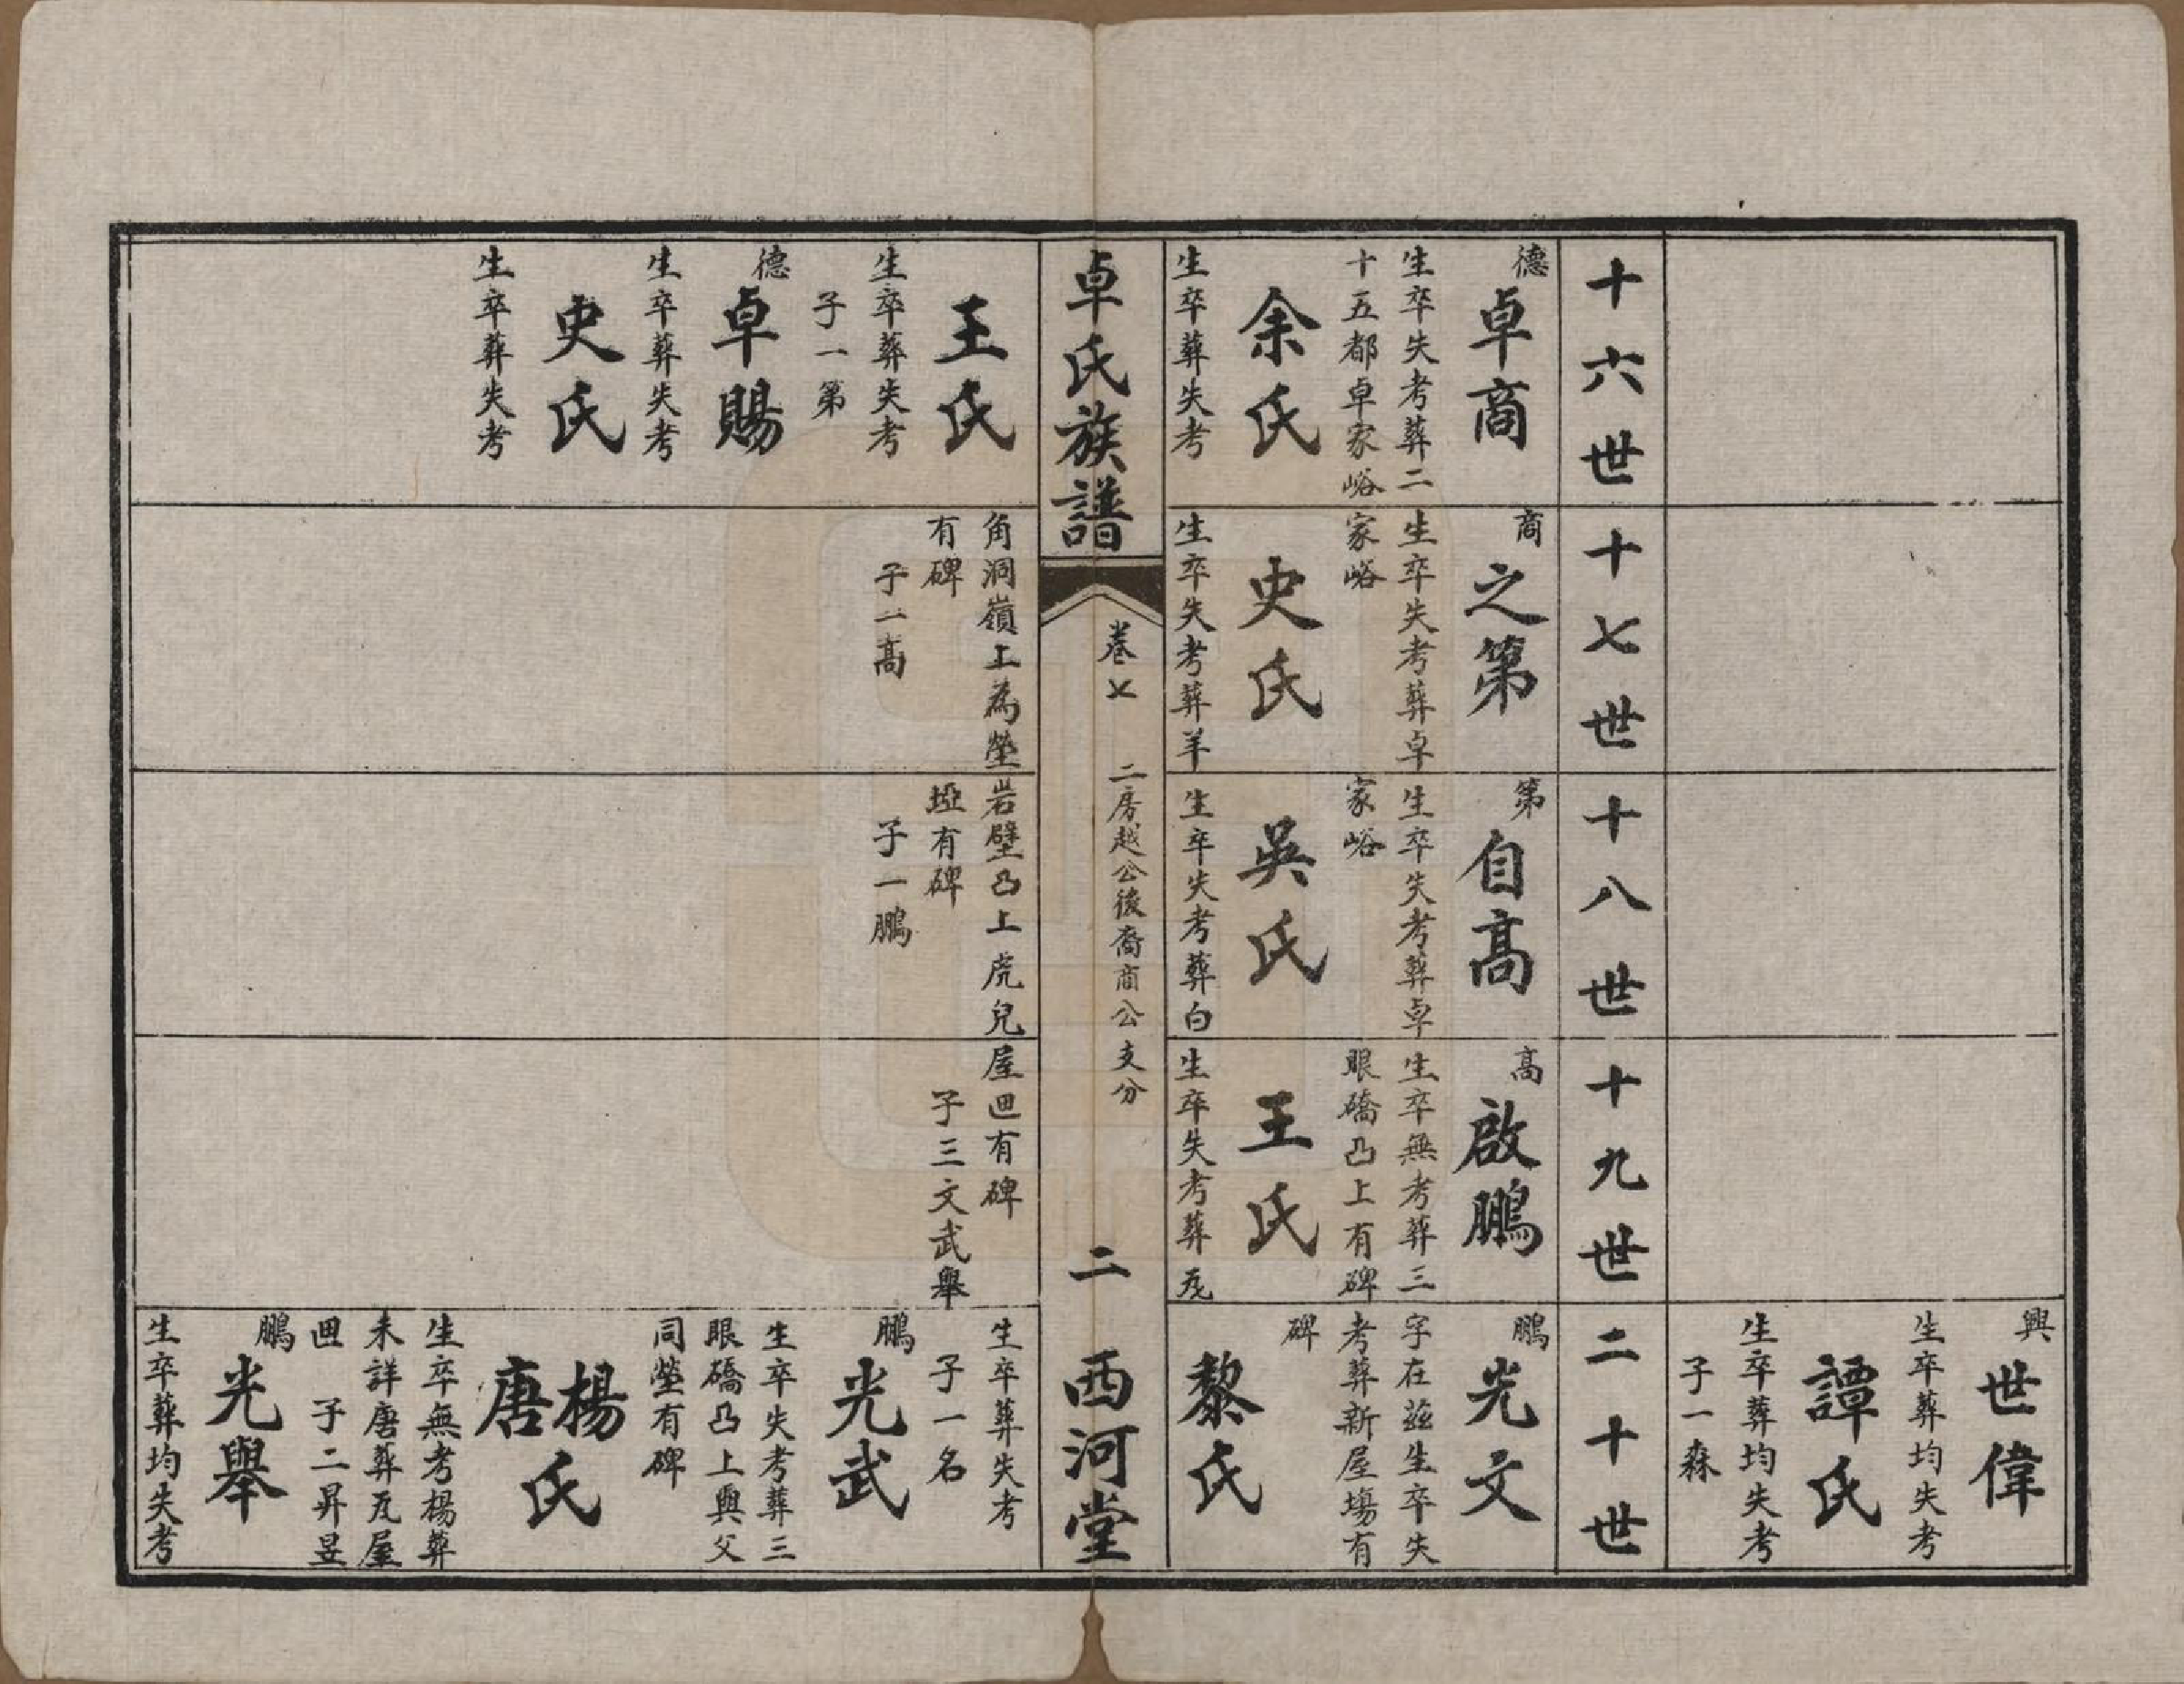 興
世偉
生卒葬均失考
譚氏
生卒葬均失考
子一森
十六世
十七世
十八世
十九世
二十世
德
卓商
生卒失考葬二
十五都卓家峪
余氏
生卒葬失考
商
之第
生卒失考葬卓
家峪
史氏
生卒失考葬羊
第
自高
生卒失考葬卓
家峪
吳氏
生卒失考葬白
高
啟鵬
生卒無考葬三
眼礄凸上有碑
王氏
生卒失考葬瓦
鵬
光文
字在茲生卒失
考葬新屋塲有
碑
黎氏
卓氏族譜
卷七
二房越公後裔商公支分
二
西河堂
王氏
生卒葬失考
子一第
德
卓賜
生卒葬失考
史氏
生卒葬失考
角洞嶺上為塋
有碑
子一高
岩壁凸上虎兒
埡有碑
子一鵬
屋廻有碑
子三文武舉
生卒葬失考
子一名
鵬
光武
生卒失考葬三
眼礄凸上與父
同塋有碑
楊唐氏
生卒無考楊葬
未詳唐葬瓦屋
廻 子二昇昱
鵬
光舉
生卒葬均失考